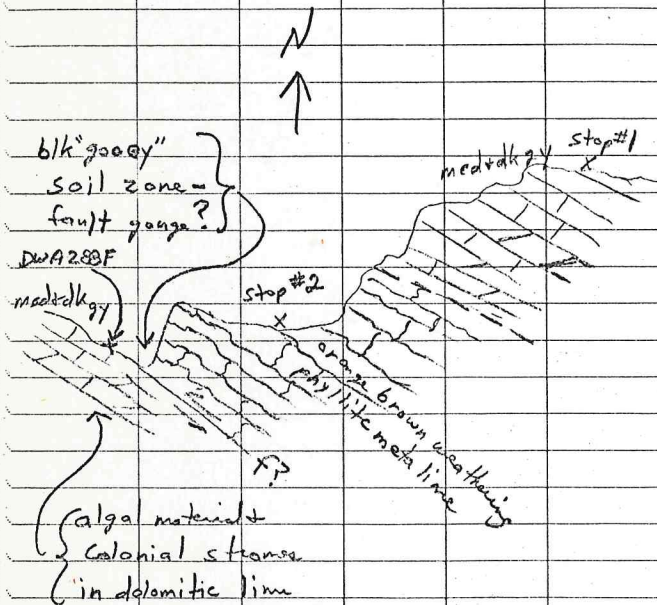 N
blk "gooey"
soil zone -
fault gouge?
DWA288F
med+dk gy
stop #2
x
med+dk gy
stop #1
x
orange brown weathering
phyllitic meta lime
f?
algal material +
Colonial stroms
in dolomitic lime